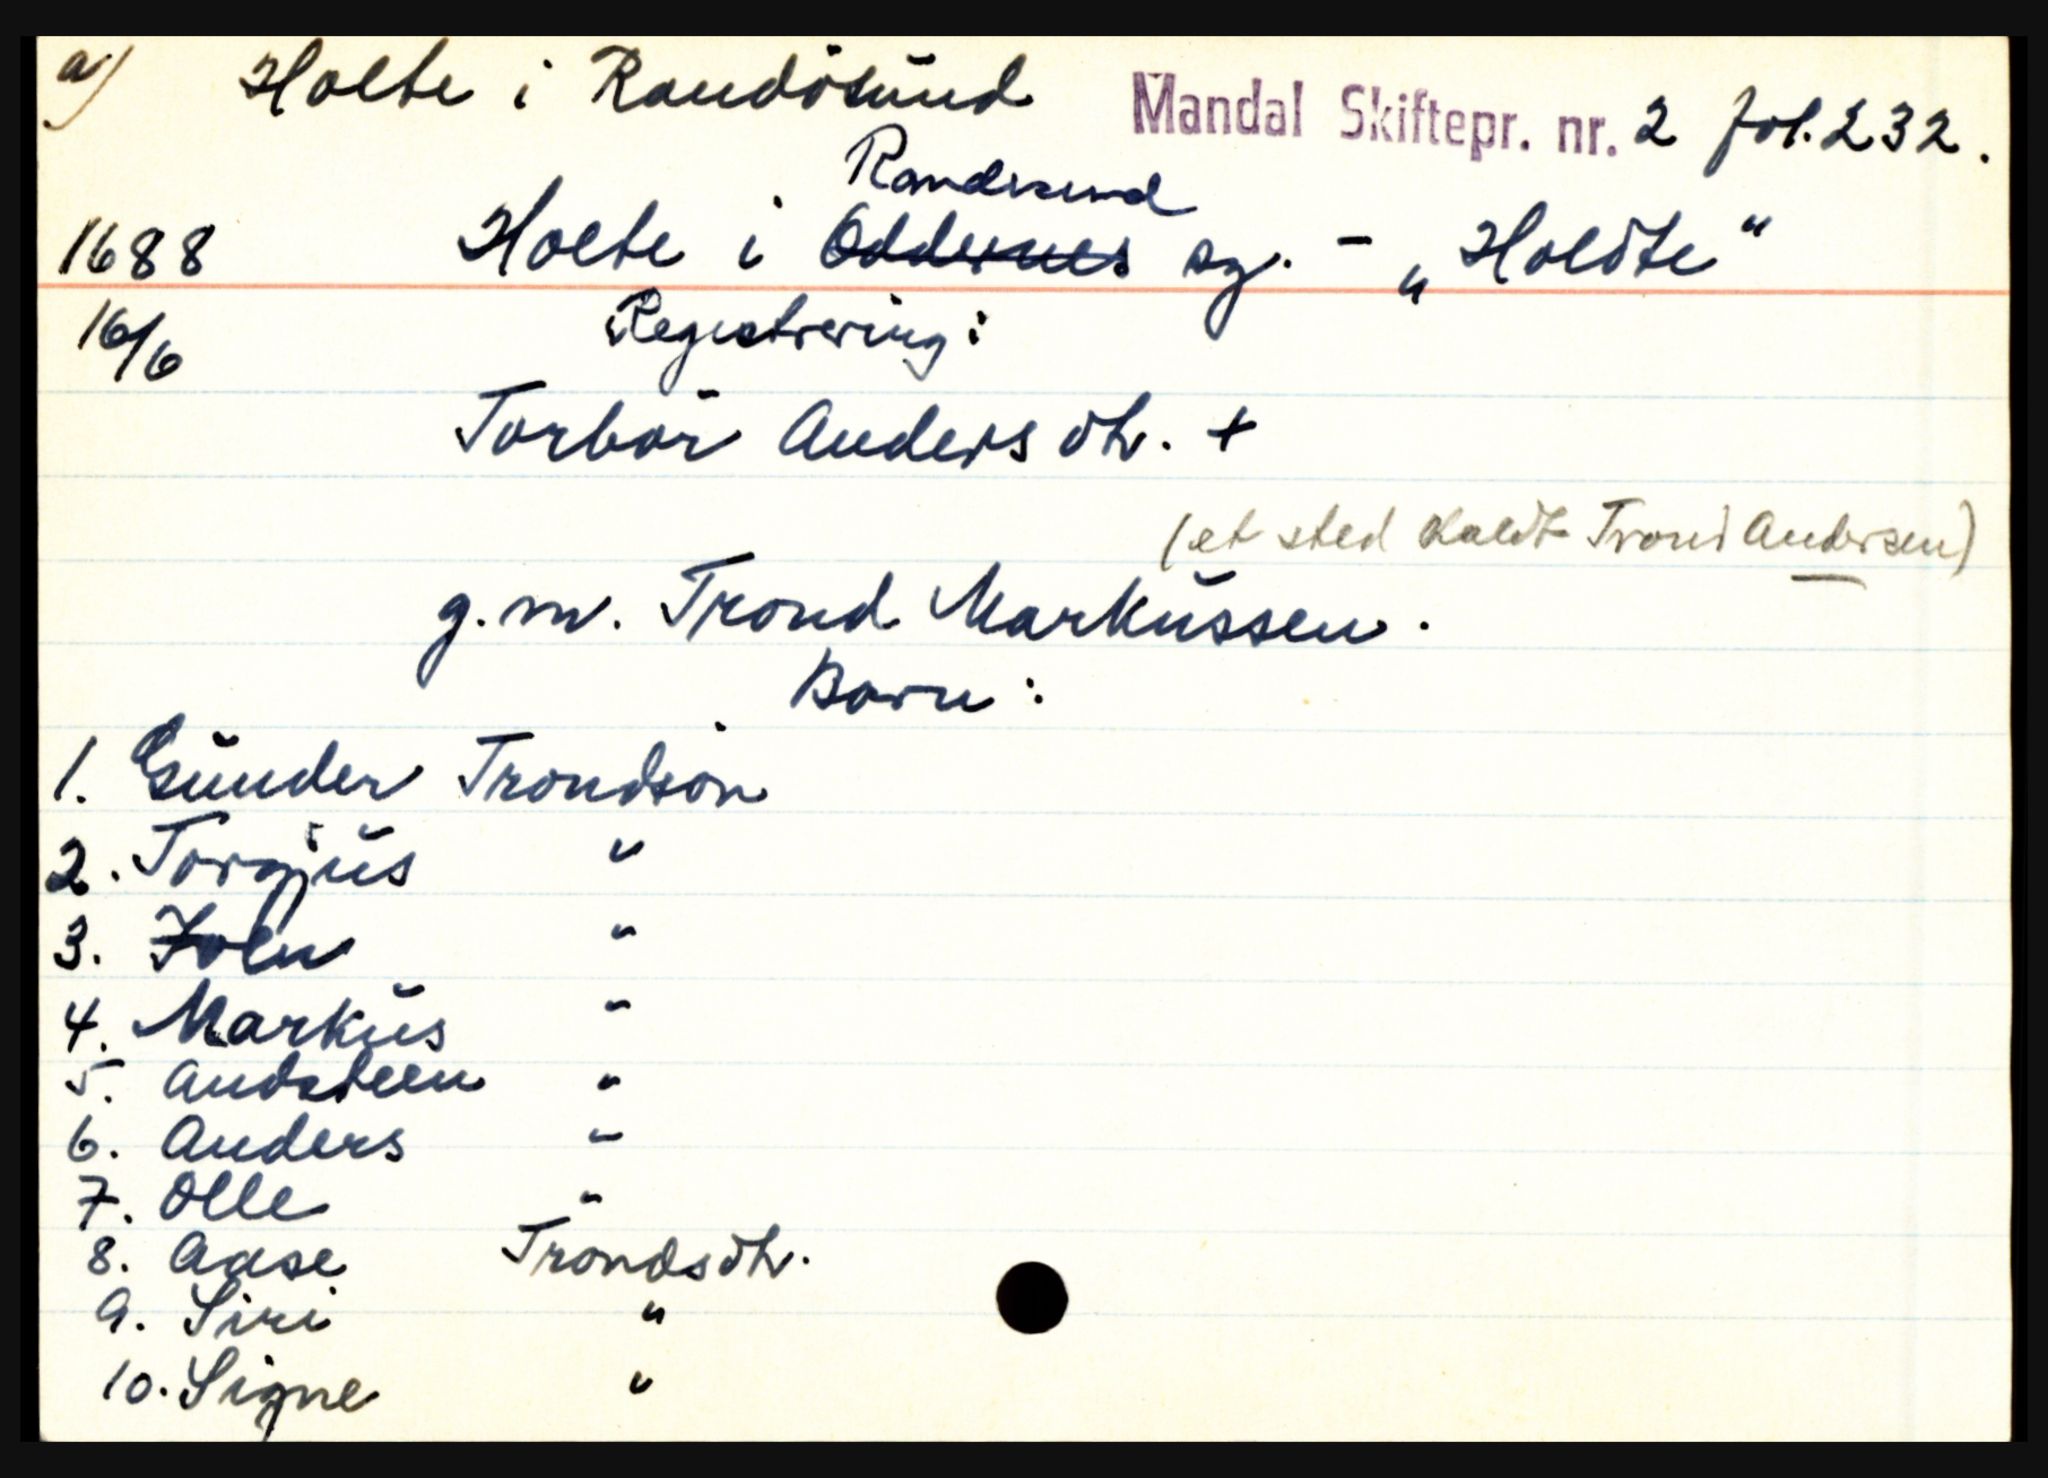 a) Holte i Randösund Mandal Skiftepr. nr. 2 fol. 232.
Randesund
1688 Holte i Oddernes sg. - „Holdte“
16/6 Registrering:
Torbor Andersdtr. +
(et sted kaldt Trond Andersen)
g. m. Trond Markussen.
Born:
1. Gunder Trondson
2. Torgjus "
3. Joen "
4. Markus "
5. Andsteen "
6. Anders "
7. Olle "
8. Aase Trondsdtr.
9. Siri "
10. Signe "